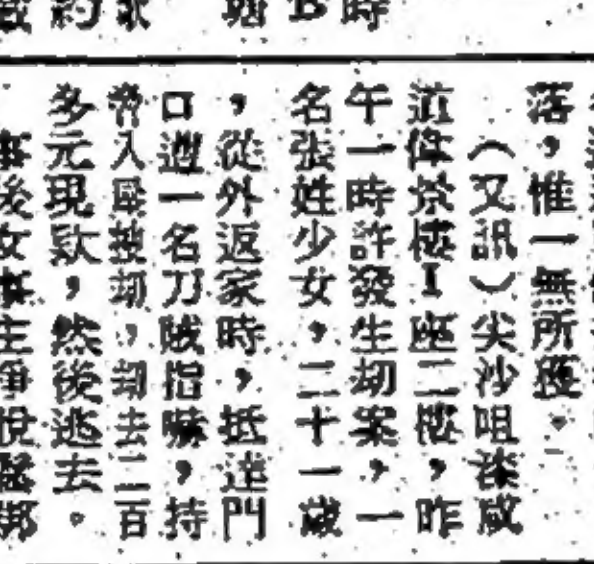 落，惟一無所獲。
（又訊）尖沙咀漆咸
道偉景樓I座二樓，昨
午一時許發生劫案，一
名張姓少女，二十一歲
，從外返家時，抵達門
口遭一名刀賊指嚇，持
脅入屋搜劫，劫去二百
多元現款，然後逃去。
事後女事主爭脫